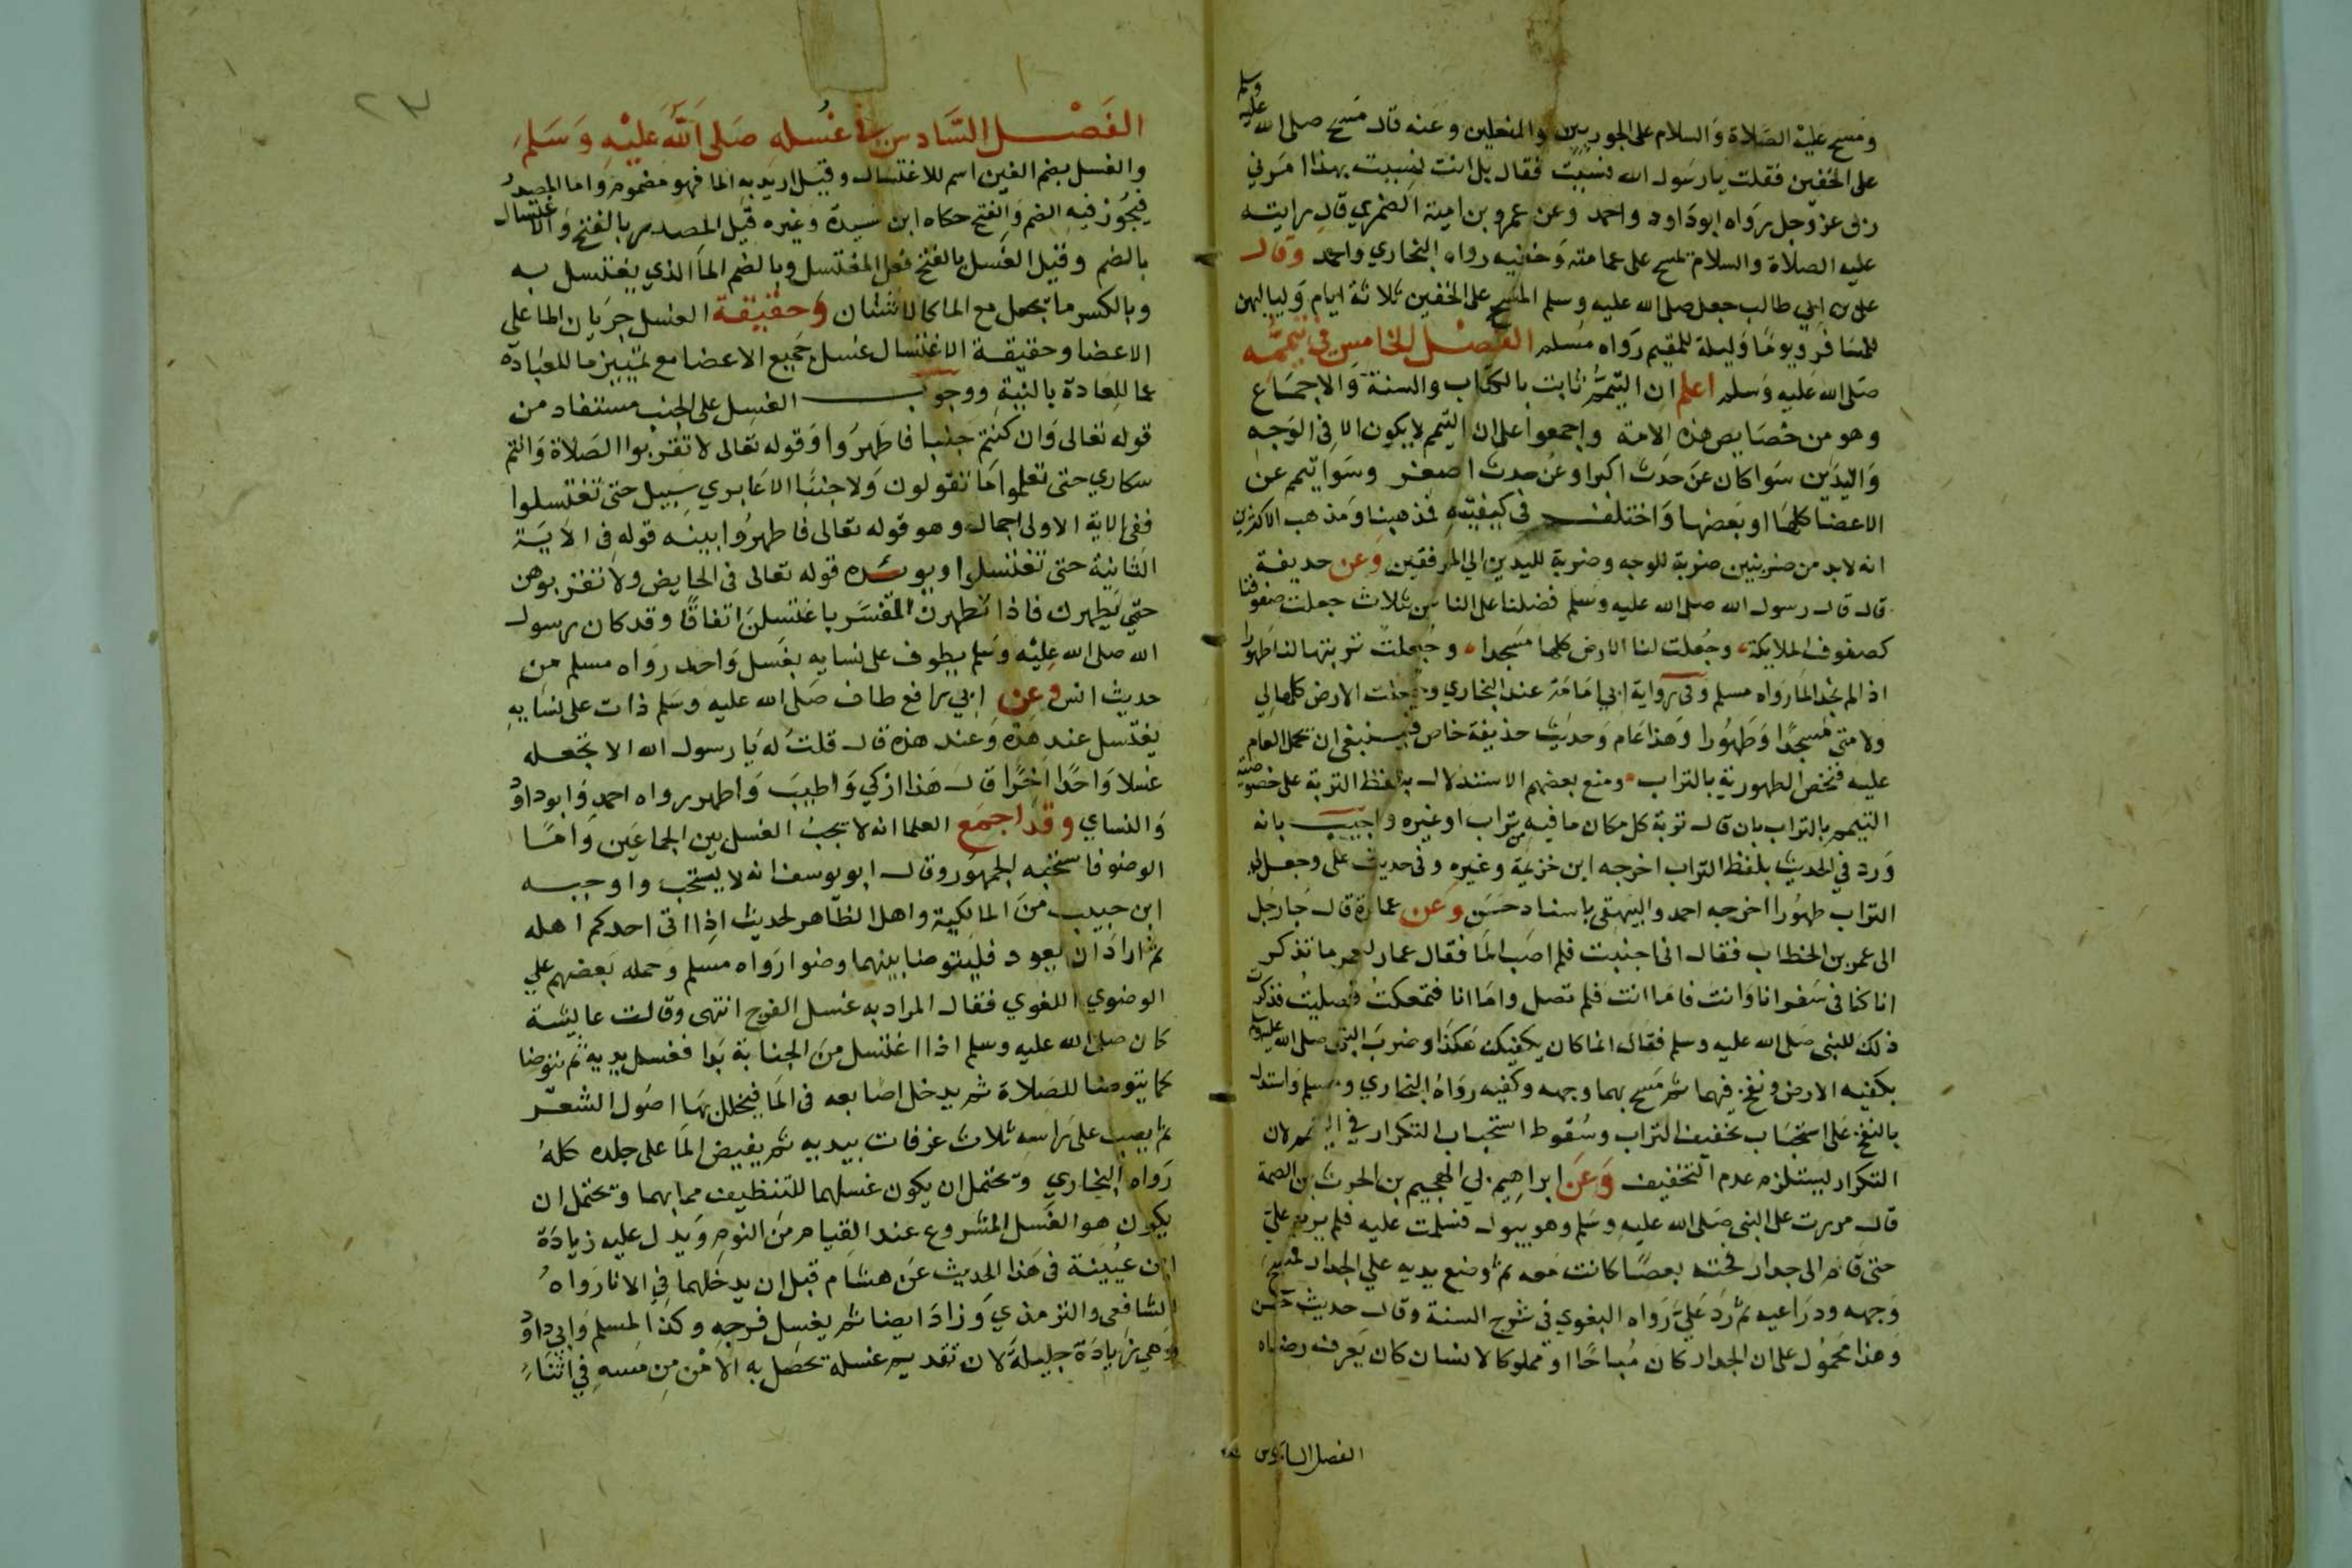 ومسح عليه الصلاة والسلام على الجوربين والمنعلين وعنه قال مسح صلى الله عليه وسلم
على الخفين فقلت يارسول الله نسيت فقال بل انت نسيت بهذا امرني
ربي عز وجل رواه ابوداود واحمد وعن عمرو بن امية الضمري قال رايته
عليه الصلاة والسلام يمسح على عمامته وخفيه رواه البخاري واحمد وقال
علي بن ابي طالب جعل صلى الله عليه وسلم المسح على الخفين ثلاثة ايام ولياليهن
للمسافر ويوما وليلة للمقيم رواه مسلم الفصل الخامس في تيممه
صلى الله عليه وسلم اعلم ان التيمم ثابت بالكتاب والسنة والاجماع
وهو من خصايص هذه الامة واجمعوا على ان التيمم لا يكون الا في الوجه
واليدين سوا كان عن حدث اكبر او عن حدث اصغر وسوا تيمم عن
الاعضا كلها او بعضها واختلف في كيفيته فمذهبنا ومذهب الاكثرين
انه لابد من ضربتين ضربة للوجه وضربة لليدين الي المرفقين وعن حذيفة
قال قال رسول الله صلى الله عليه وسلم فضلنا على الناس بثلاث جعلت صفوفنا
كصفوف الملايكة وجعلت لنا الارض كلها مسجدا وجعلت تربتها لنا طهورا
اذا لم نجد الما رواه مسلم وفي رواية ابي امامة عند البخاري وجعلت الارض كلها لي
ولامتي مسجدا وطهورا وهذا عام وحديث حذيفة خاص فينبغي ان يحمل العام
عليه فتخص الطهورية بالتراب ومنع بعضهم الاستدلال بلفظ التربة على خصوصية
التيمم بالتراب بان قال تربة كل مكان ما فيه من تراب او غيره واجيب بانه
ورد في الحديث بلفظ التراب اخرجه ابن خزيمة وغيره وفي حديث علي وجعل لي
التراب طهورا اخرجه احمد والبيهقي باسناد حسن وعن عمارة قال جا رجل
الى عمر بن الخطاب فقال اني اجنبت فلم اصب الما فقال عمار لعمر ما تذكر
انا كنا في سفر انا وانت فاما انت فلم تصل واما انا فتمعكت فصليت فذكرت
ذلك للنبي صلى الله عليه وسلم فقال انما كان يكفيك هكذا وضرب النبي صلى الله عليه وسلم
بكفيه الارض ونفخ فيهما ثم مسح بهما وجهه وكفيه رواه البخاري ومسلم واستدل
بالنفخ على استحباب تخفيف التراب وسقوط استحباب التكرار في التيمم لان
التكرار يستلزم عدم التخفيف وعن ابراهيم بي الجهيم بن الحرث بن الصمة
قال مررت على النبي صلى الله عليه وسلم وهو يبول فسلمت عليه فلم يرد علي
حتى قام الى جدار فحته بعصا كانت معه ثم وضع يديه علي الجدار فمسح
وجهه ودراعيه ثم رد علي رواه البغوي في شرح السنة وقال حديث حسن
وهذا محمول على ان الجدار كان مباحا او مملوكا لانسان كان يعرف رضاه
الفصل السادس
٢٣
الفصل السادس في غسله صلى الله عليه وسلم
والغسل بضم الغين اسم للاغتسال وقيل اريد به الما فهو مضموم واما المصدر
فيجوز فيه الضم والفتح حكاه ابن سيدة وغيره قيل المصدر بالفتح والاغتسال
بالضم وقيل الغسل بالفتح فعل المغتسل وبالضم الما الذي يغتسل به
وبالكسر ما يجعل مع الما كالاشنان وحقيقة الغسل جريان الما على
الاعضا وحقيقة الاغتسال غسل جميع الاعضا مع تمييز ما للعبادة
عما للعادة بالنية ووجوب الغسل على الجنب مستفاد من
قوله تعالى وان كنتم جنبا فاطهروا وقوله تعالى لا تقربوا الصلاة وانتم
سكاري حتى تعلموا ما تقولون ولا جنبا الا عابري سبيل حتى تغتسلوا
ففي الاية الاولى اجمال وهو قوله تعالى فاطهروا بينه قوله في الاية
الثانية حتى تغتسلوا ويويده قوله تعالى في الحايض ولا تقربوهن
حتي يطهرن فاذا تطهرن المفسر باغتسلن اتفاقا وقد كان رسول
الله صلى الله عليه وسلم يطوف على نسايه بغسل واحد رواه مسلم من
حديث انس وعن ابي رافع طاف صلى الله عليه وسلم ذات على نسايه
يغتسل عند هذه وعند هذه قال قلت له يارسول الله الا تجعله
غسلا واحدا اخرا قال هذا ازكي واطيب واطهر رواه احمد وابوداود
والنساي وقد اجمع العلما انه لا يجب الغسل بين الجماعين واما
الوضو فاستحبه الجمهور وقال ابويوسف انه لا يستحب واوجبه
ابن حبيب من المالكية واهل الظاهر لحديث اذا اتى احدكم اهله
ثم اراد ان يعود فليتوضا بينهما وضوا رواه مسلم وحمله بعضهم علي
الوضوي اللغوي فقال المراد به غسل الفرج انتهى وقالت عايشة
كان صلى الله عليه وسلم اذا اغتسل من الجنابة بدا فغسل يديه ثم يتوضا
كما يتوضا للصلاة ثم يدخل اصابعه في الما فيخلل بها اصول الشعر
ثم يصب على راسه ثلاث غرفات بيديه ثم يفيض الما على جلده كله
رواه البخاري ويحتمل ان يكون غسلهما للتنظيف مما بهما ويحتمل ان
يكون هو الغسل المشروع عند القيام من النوم ويدل عليه زيادة
ابن عيينة في هذا الحديث عن هشام قبل ان يدخلهما في الانا رواه
الشافعي والترمذي وزاد ايضا ثم يغسل فرجه وكذا لمسلم وابي داود
وهي زيادة جليلة لان تقديم غسله تحصل به الامن من مسه في اثناء